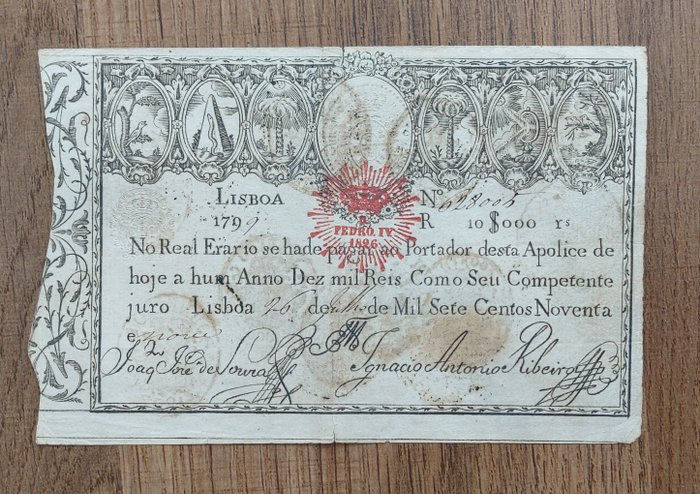 LISBOA
Nº
1799
R 10$000 rs
D.
PEDRO IV
1826
No Real Erario se hade pagar ao Portador desta Apolice de
hoje a hum Anno Dez mil Reis Com o Seu Competente
juro Lisboa 26 de de Mil Sete Centos Noventa
e nove
Joaqm José de Souza Ignacio Antonio Ribeiro